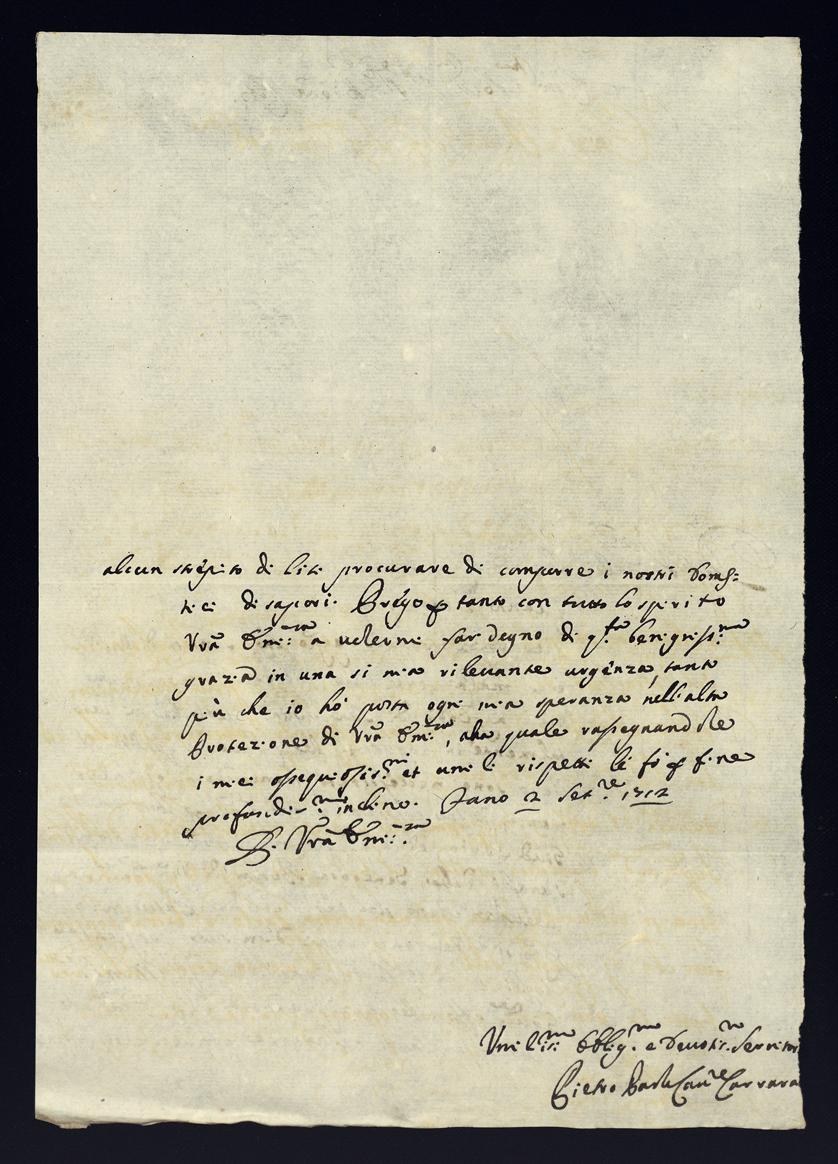 alcun strépito di liti procurare di comporre i nostri Domes=
tici disapori. Prégo p tanto con tutto lo spirito
Vrã Emi:za a uolermi far degno di q.sta benigniss.ma
grazia in una si mia rileuante urgénza, tanto
più che io hò posta ogni mia speranza nell'alta
Protezione di Vrã Emi:za, alla quale rasegnandole
i miei osequiosis.mi et umili rispetti le fò p fine
profondis.mo inclino. Fano 2 Set.re 1712
D. Vrã Emi:za
Umilis.mo Obblig.mo e Deuotis.mo Seruitor
Pietro Carrara